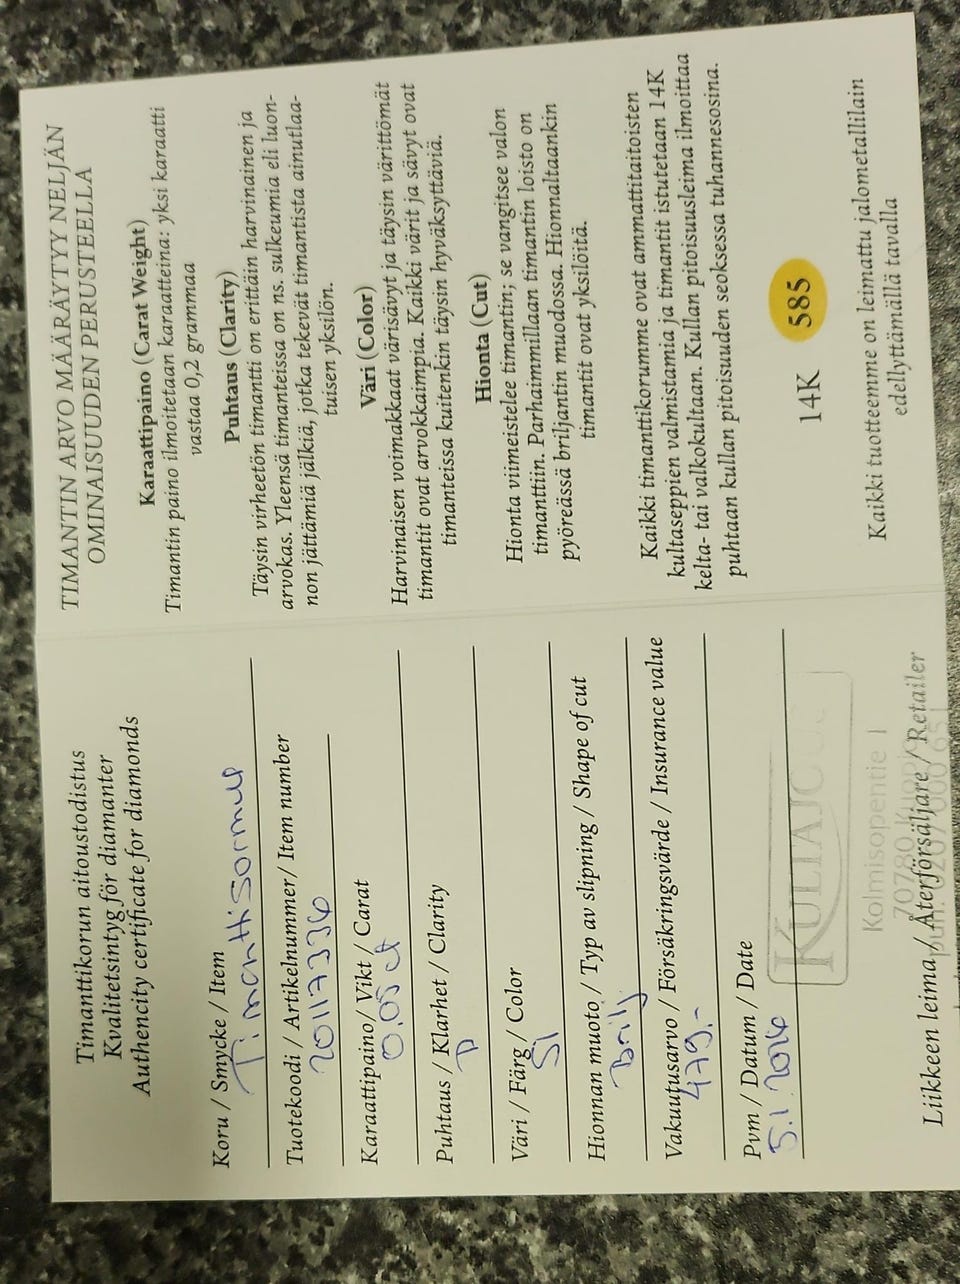 Timanttikorun aitoustodistus
Kvalitetsintyg för diamanter
Authencity certificate for diamonds
Koru / Smycke / Item
Timanttisormus
Tuotekoodi / Artikelnummer / Item number
201173336
Karaattipaino / Vikt / Carat
0.05 ct
Puhtaus / Klarhet / Clarity
P
Väri / Färg / Color
SI
Hionnan muoto / Typ av slipning / Shape of cut
Brilj
Vakuutusarvo / Försäkringsvärde / Insurance value
479.-
Pvm / Datum / Date
5.1.2016
KULTAJO
Kolmisopentie 1
70780
Liikkeen leima / Återförsäljare / Retailer
TIMANTIN ARVO MÄÄRÄYTYY NELJÄN
OMINAISUUDEN PERUSTEELLA
Karaattipaino (Carat Weight)
Timantin paino ilmoitetaan karaatteina: yksi karaatti
vastaa 0,2 grammaa
Puhtaus (Clarity)
Täysin virheetön timantti on erittäin harvinainen ja
arvokas. Yleensä timanteissa on ns. sulkeumia eli luon-
non jättämiä jälkiä, jotka tekevät timantista ainutlaa-
tuisen yksilön.
Väri (Color)
Harvinaisen voimakkaat värisävyt ja täysin värittömät
timantit ovat arvokkaimpia. Kaikki värit ja sävyt ovat
timanteissa kuitenkin täysin hyväksyttäviä.
Hionta (Cut)
Hionta viimeistelee timantin; se vangitsee valon
timanttiin. Parhaimmillaan timantin loisto on
pyöreässä briljantin muodossa. Hionnaltaankin
timantit ovat yksilöitä.
Kaikki timanttikorumme ovat ammattitaitoisten
kultaseppien valmistamia ja timantit istutetaan 14K
kelta- tai valkokultaan. Kullan pitoisuusleima ilmoittaa
puhtaan kullan pitoisuuden seoksessa tuhannesosina.
14K 585
Kaikki tuotteemme on leimattu jalometallilain
edellyttämällä tavalla